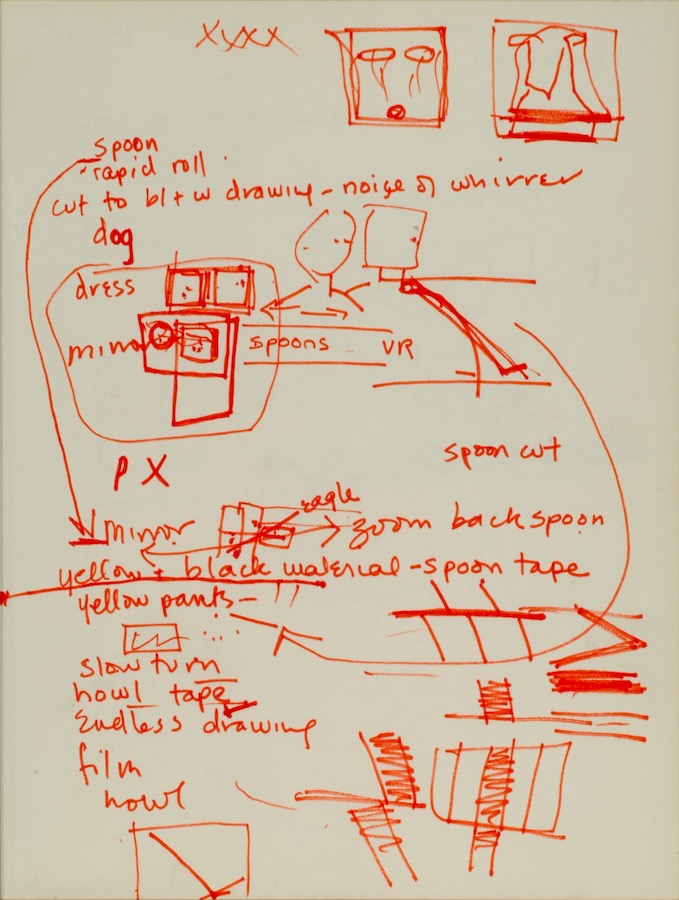 XXXX
spoon
rapid roll
cut to bl + w drawing - noise of whirrer
dog
dress
mirror
spoons
VR
spoon cut
PX
mirror
eagle
zoom back spoon
yellow + black material - spoon tape
yellow pants -
slow turn
howl tape
Endless drawing
film
howl